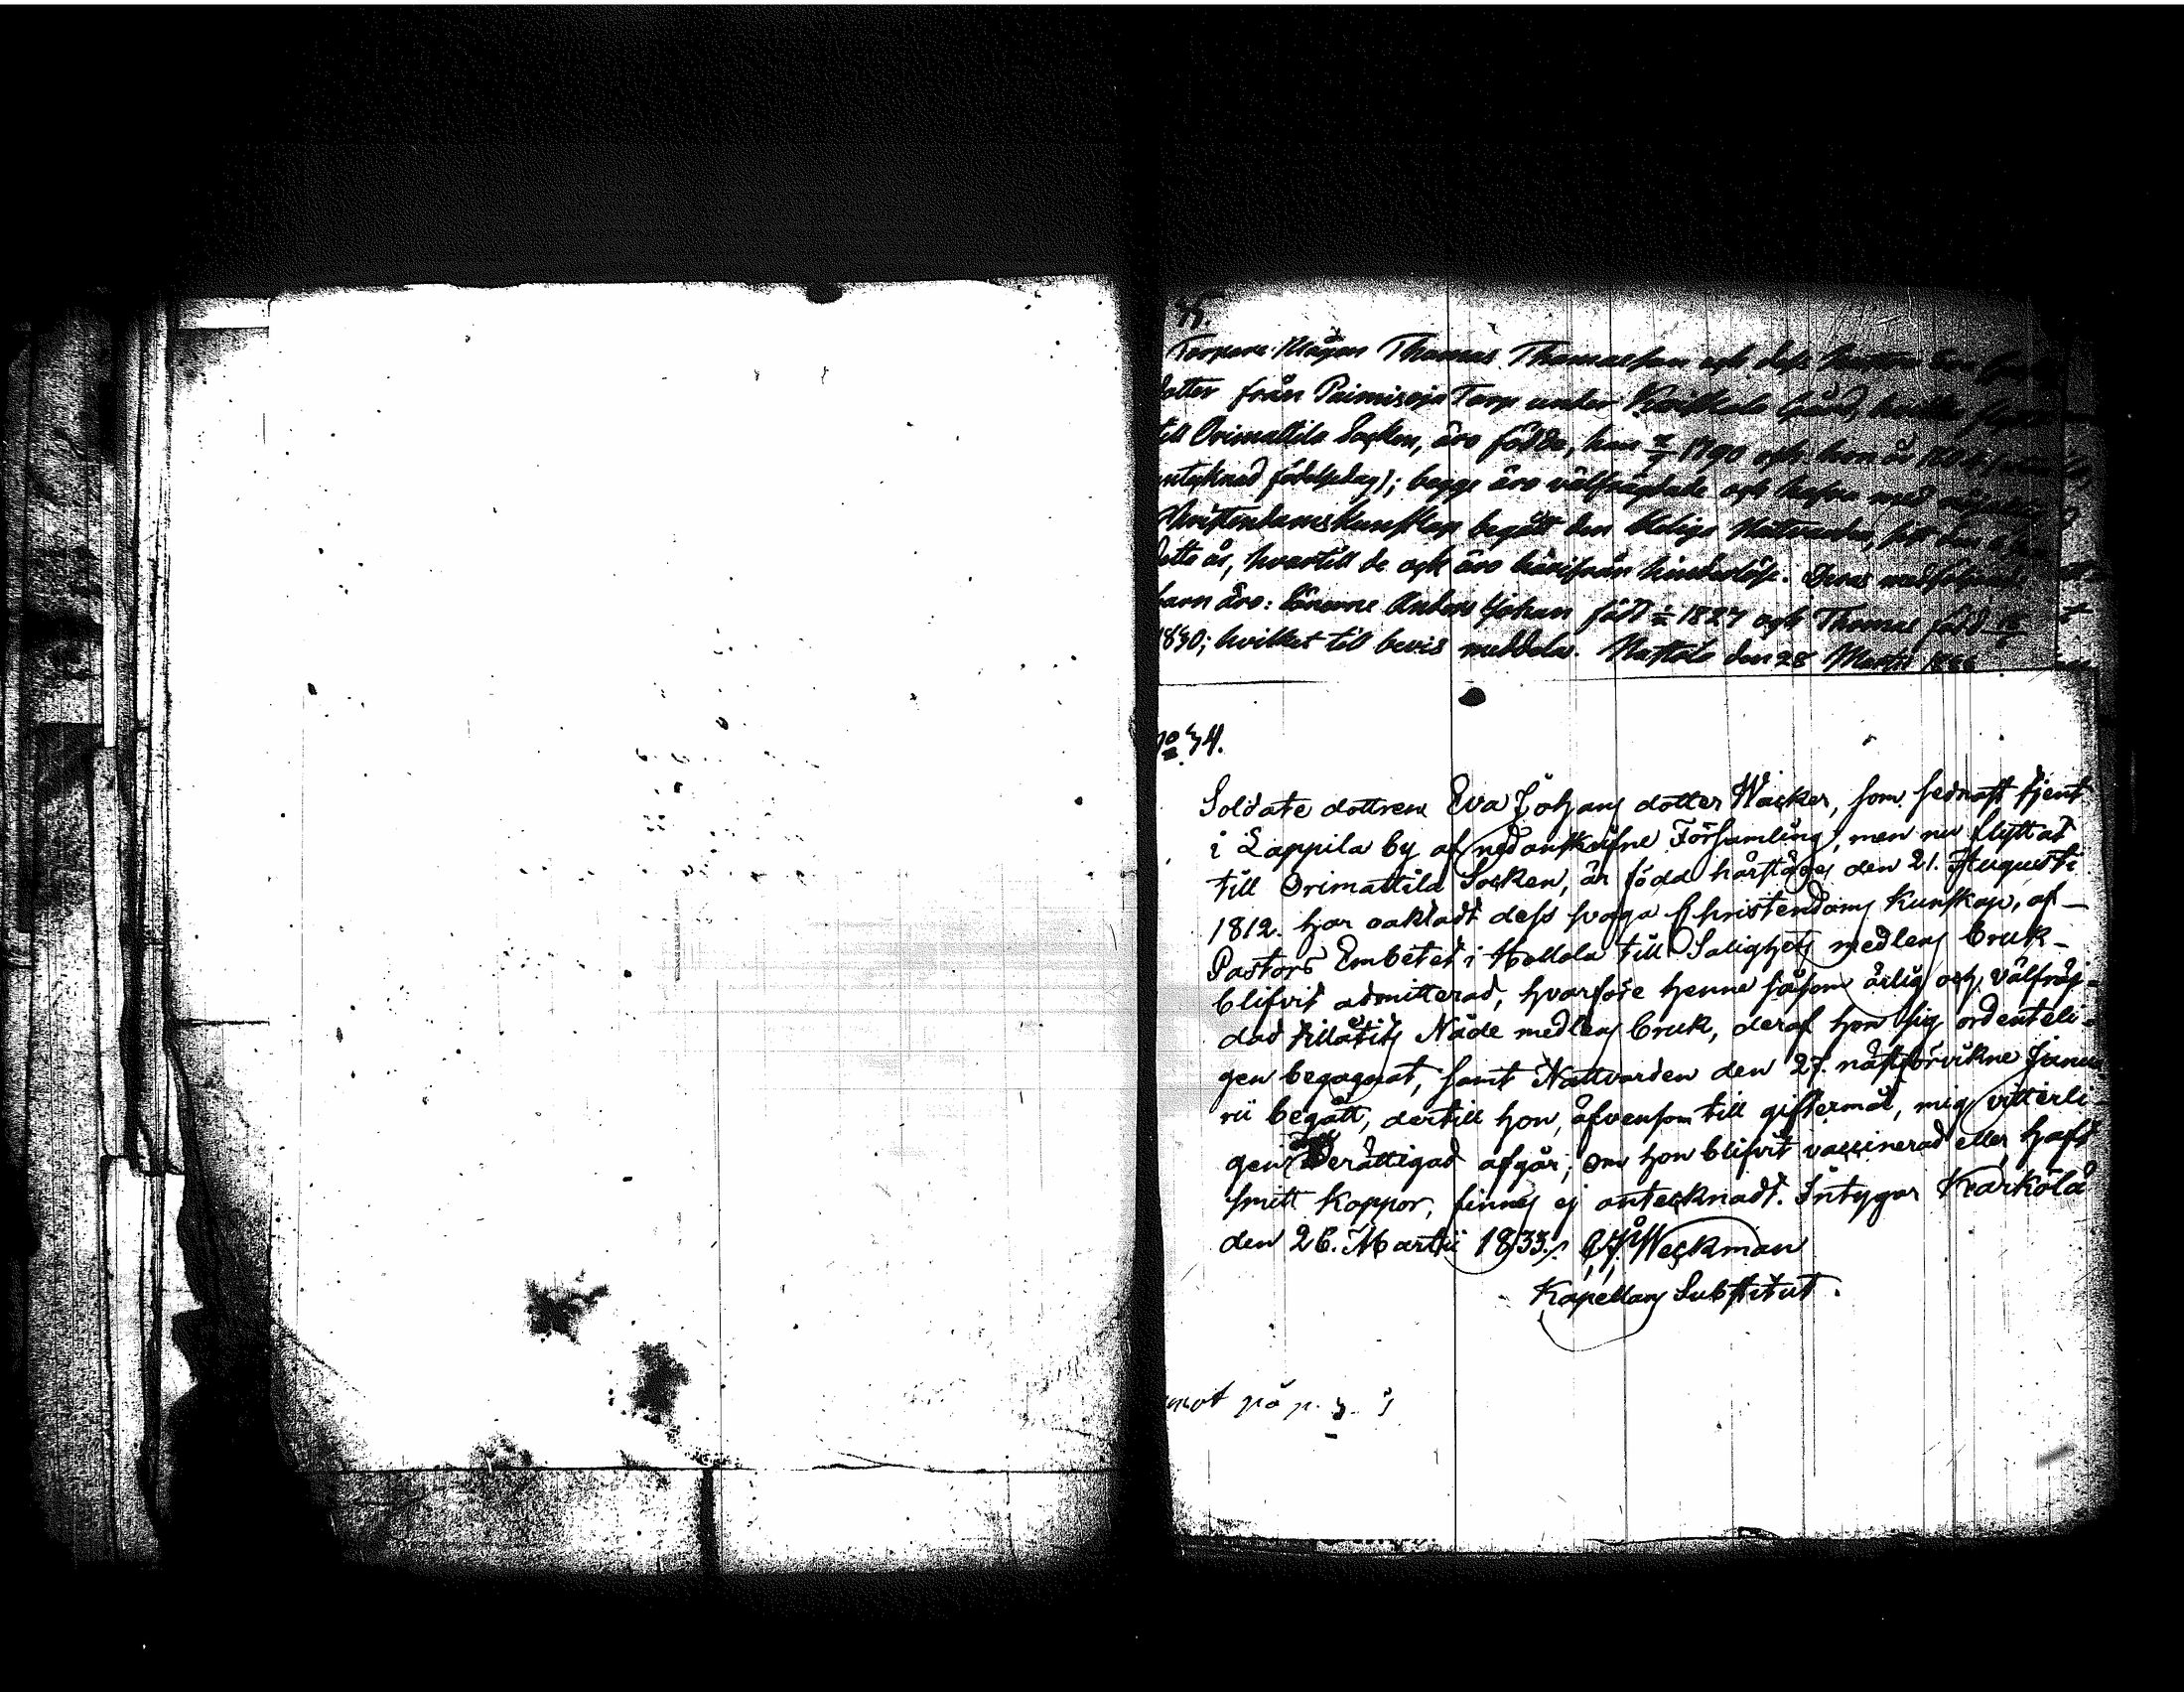 Torpare Mågen Thomas Thomasson och dess hustru Eva
dotter från Paimisoja Torp under Koiskala Gård,
till Orimattila Socken, äro födde, han 1790 och hon år
antecknad födelsedag); begge äro välfrägdade och hafva med
Christendomskunskap begått den Heliga Nattvarden,
detta år, hvartill de och äro härifrån hinderlöse. Deras medföljande
barn äro: Sönerne Anders Johan född 1827 och Thomas född
1830; hvilket till bevis meddelas. Nastola den 28 Martii
No 34.
Soldate dottren Eva Johans dotter Wacker, som sednast tjent
i Lappila by af nedanskrifne Församling, men nu flyttad
till Orimattila Socken, är född härstädes den 21. Augusti
1812. har oaktadt dess svaga Christendoms kunskap, af
Pastors Embetet i Hollola till Salighets medlens bruk
blifvit admitterad, hvarföre henne såsom ärlig och välfräj-
dad tillåtits Nåde medlens bruk, deraf hon sig ordenteli-
gen begagnat, samt Nattvarden den 27. nästförvikne Janua-
rii begått, dertill hon, äfvensom till giftermål, mig vitterli-
gen berättigad afgår; om hon blifvit vaccinerad eller haft
smitt koppor, finnes ej antecknadt. Intygar Kärkölä
den 26. Martii 1833. Weckman
Kapellans Substitut.
mot på p.